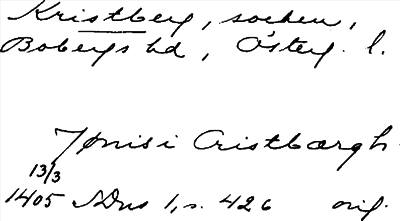 Kristberg, socken,
Bobergs hd, Österg. l.
Ymisi Cristbærgh
13/3
1405 SDns 1, s. 426 orig.